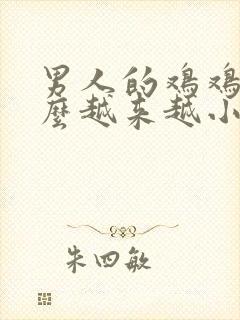 男人的鸡鸡
麼越来越小
朱四敏